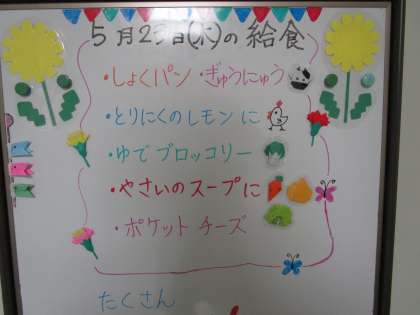 5月23日(木)の給食
・しょくパン ・ぎゅうにゅう
・とりにくのレモンに
・ゆでブロッコリー
・やさいのスープに
・ポケットチーズ
たくさん